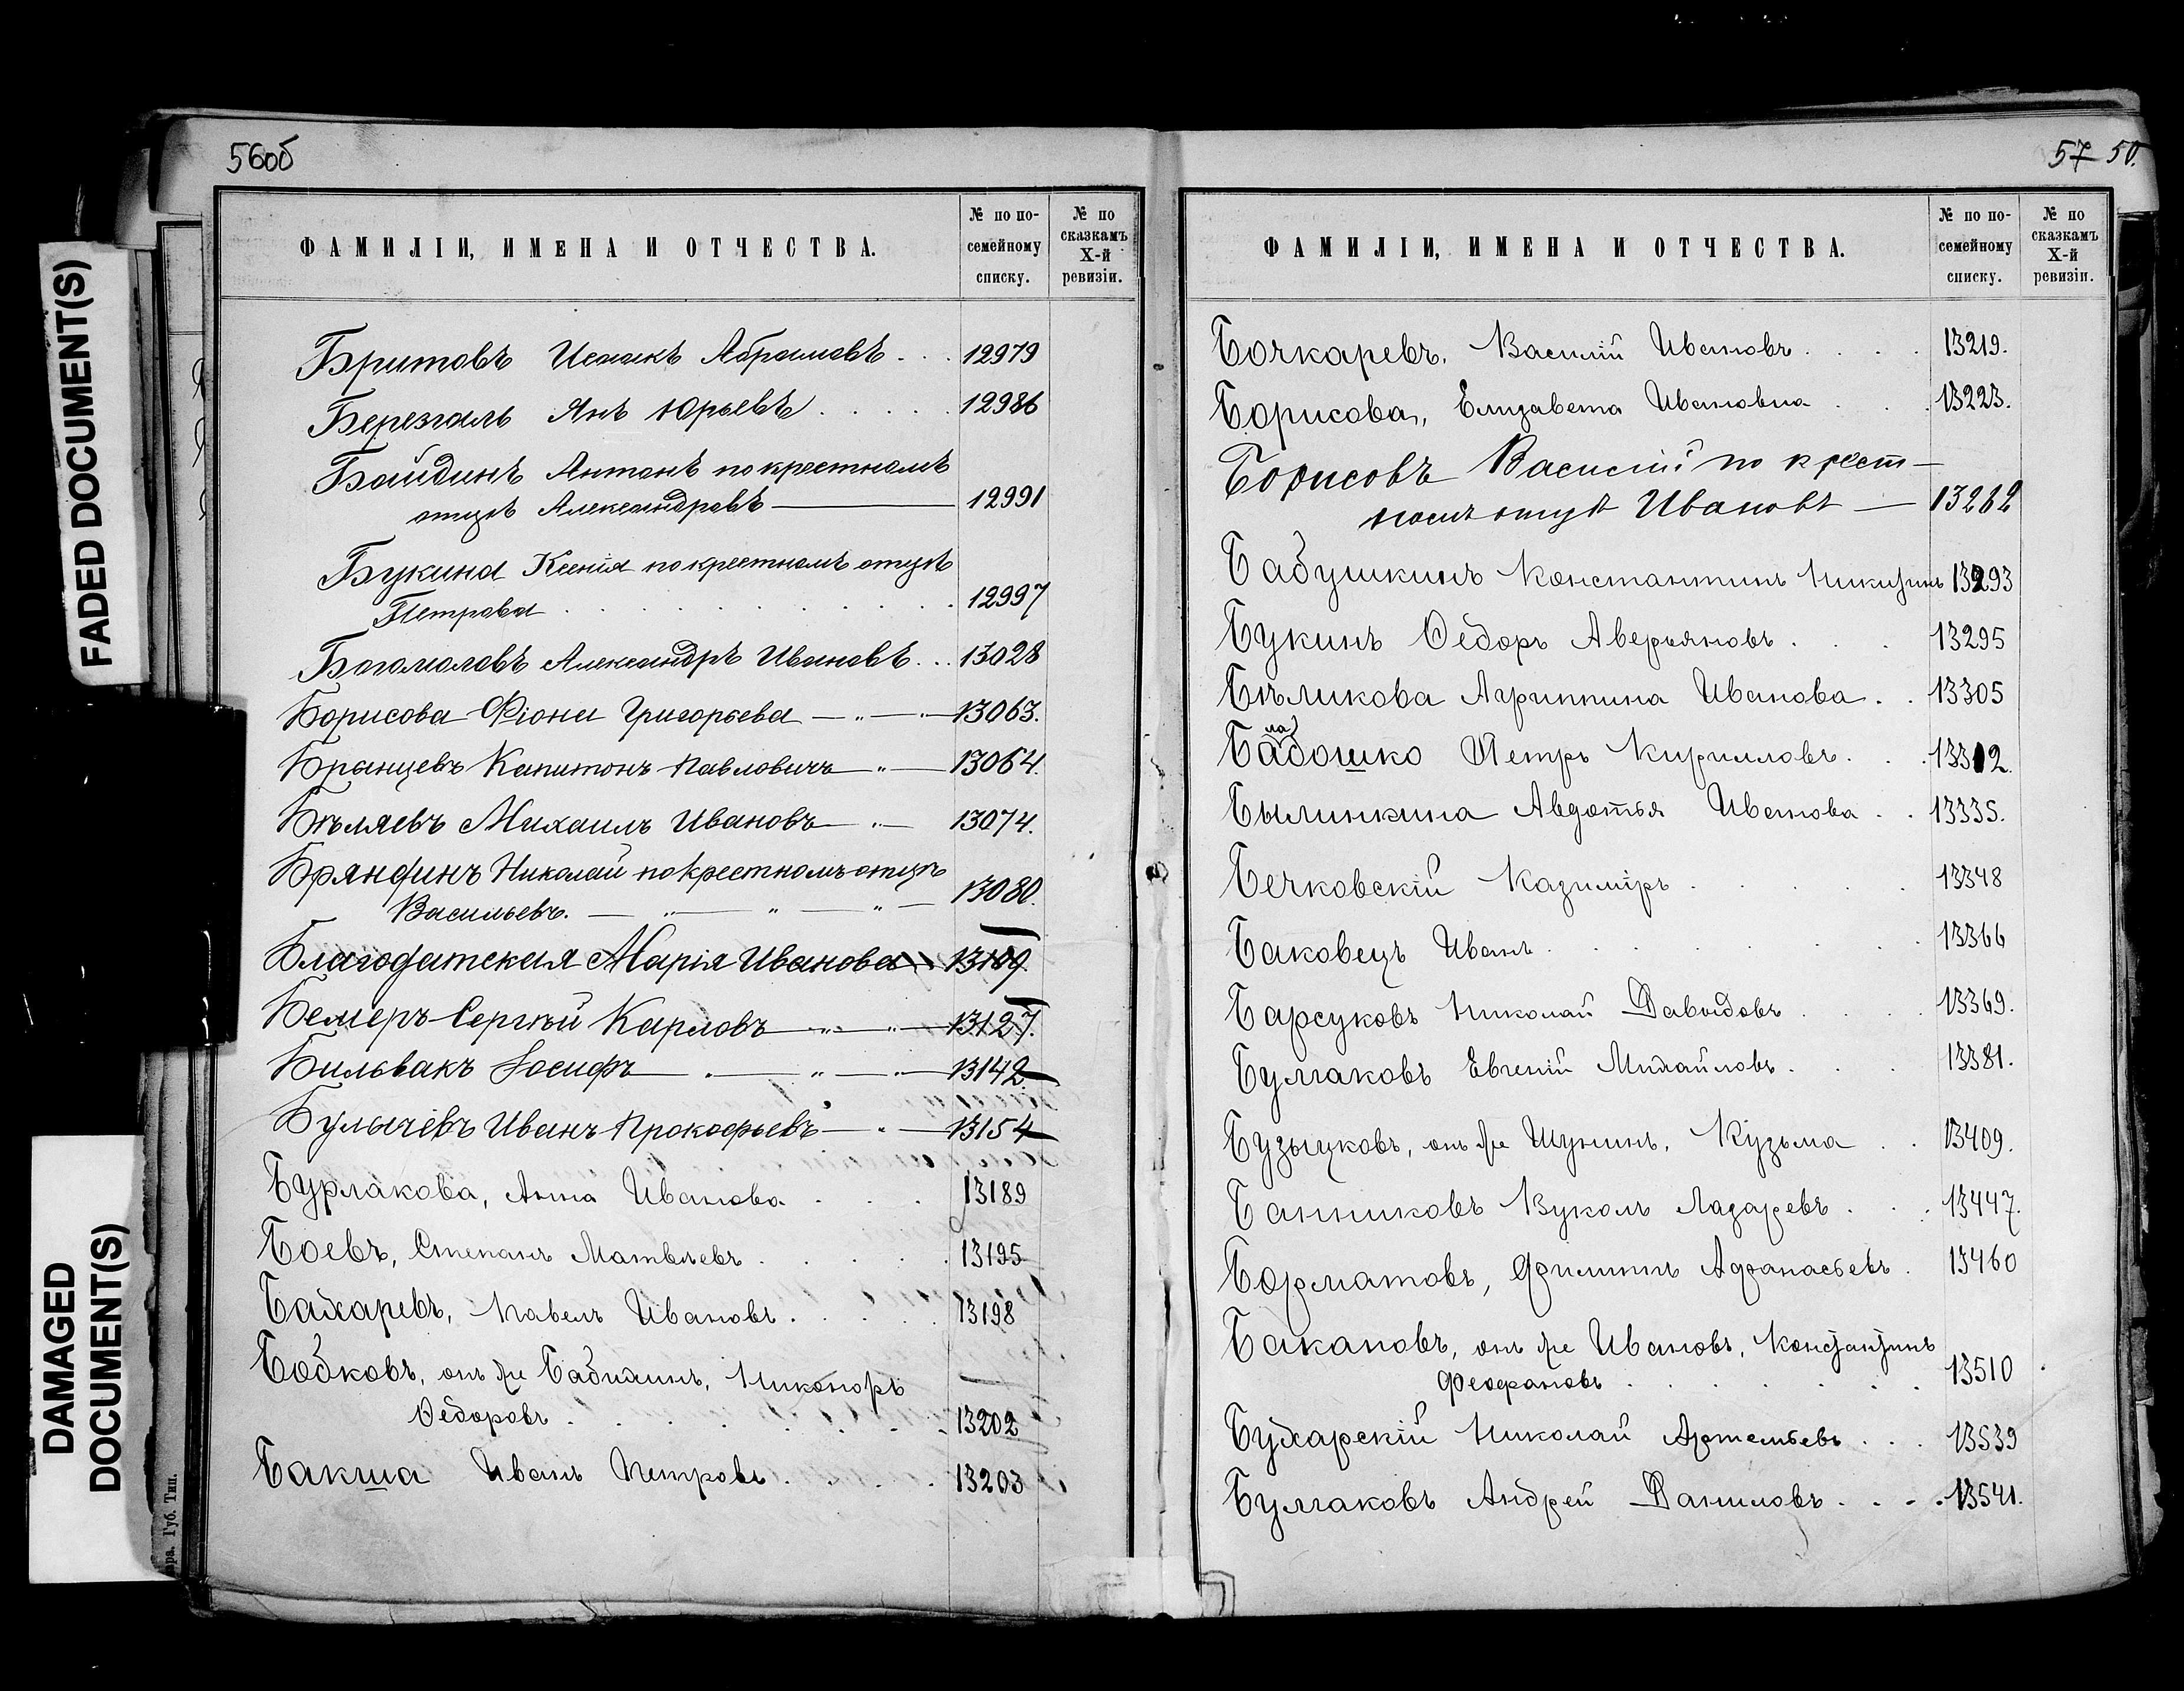 56об
ФАМИЛІИ, ИМЕНА И ОТЧЕСТВА.
№ по по-
семейному
списку.
№ по
сказкамъ
X-й
ревизіи.
Бритовъ Исаакъ Абрамовъ . . . 12979
Березгаль Янъ Юрьевъ . . . . . 12986
Байдинъ Антонъ по крестномъ
отцѣ Александровъ — 12991
Букина Ксенія по крестномъ отцѣ
Петрова . . . . . . . . . . 12997
Богомоловъ Александръ Ивановъ . . . 13028
Борисова Фіона Григорьева — " — " — 13063.
Брынцевъ Капитонъ Павловичъ — " — 13064.
Бѣляевъ Михаилъ Ивановъ — " — 13074.
Брянфинъ Николай по крестномъ отцѣ
Васильевъ. — " — " — " — 13080.
Благодатская Марія Иванова 13109.
Бемеръ Сергѣй Карловъ — " — " — 13127.
Бильвакъ Іосифъ — " — " — " — 13142.
Булычевъ Иванъ Прокофьевъ — " — 13154
Бурлакова, Анна Иванова . . . 13189
Боевъ, Степанъ Матвѣевъ . . . . . 13195
Бахаревъ, Павелъ Ивановъ . . . . . 13198
Бобковъ, онъ же Бабихинъ, Никоноръ
Ѳедоровъ . . . . . . . . . 13202
Бакша Иванъ Петровъ . . . . 13203
ара. Губ. Тип.
57 50.
ФАМИЛІИ, ИМЕНА И ОТЧЕСТВА.
№ по по-
семейному
списку.
№ по
сказкамъ
X-й
ревизіи.
Бочкаревъ, Василій Ивановъ . . . . 13219.
Борисова, Елизавета Ивановна . . . 13223.
Борисовъ Василій по крест-
номъ отцѣ Ивановъ — 13262
Бабушкинъ Константинъ Никитинъ 13293
Букинъ Ѳедоръ Аверьяновъ . . . 13295
Бѣликова Агрипина Иванова . . 13305
ла
Бадошко Петръ Кирилловъ . . . 13312.
Былинкина Авдотья Иванова . . 13335.
Бечковскій Казиміръ . . . . . 13348
Баковецъ Иванъ . . . . . . . . 13366
Барсуковъ Николай Давыдовъ . . . . 13369.
Булгаковъ Евгеній Михайловъ . . . 13381.
Бузыцковъ, онъ же Шунинъ, Кузьма . . 13409.
Банниковъ Вуколъ Лазаревъ . . . 13447.
Борматовъ, Филиппъ Афанасьевъ . 13460
Бакановъ, онъ же Ивановъ, Константинъ
Феофановъ . . . . . . . . 13510
Бухарскій Николай Артемьевъ . . . 13539
Булгаковъ Андрей Даниловъ . . . . 13541.
FADED DOCUMENT(S)
DAMAGED
DOCUMENT(S)